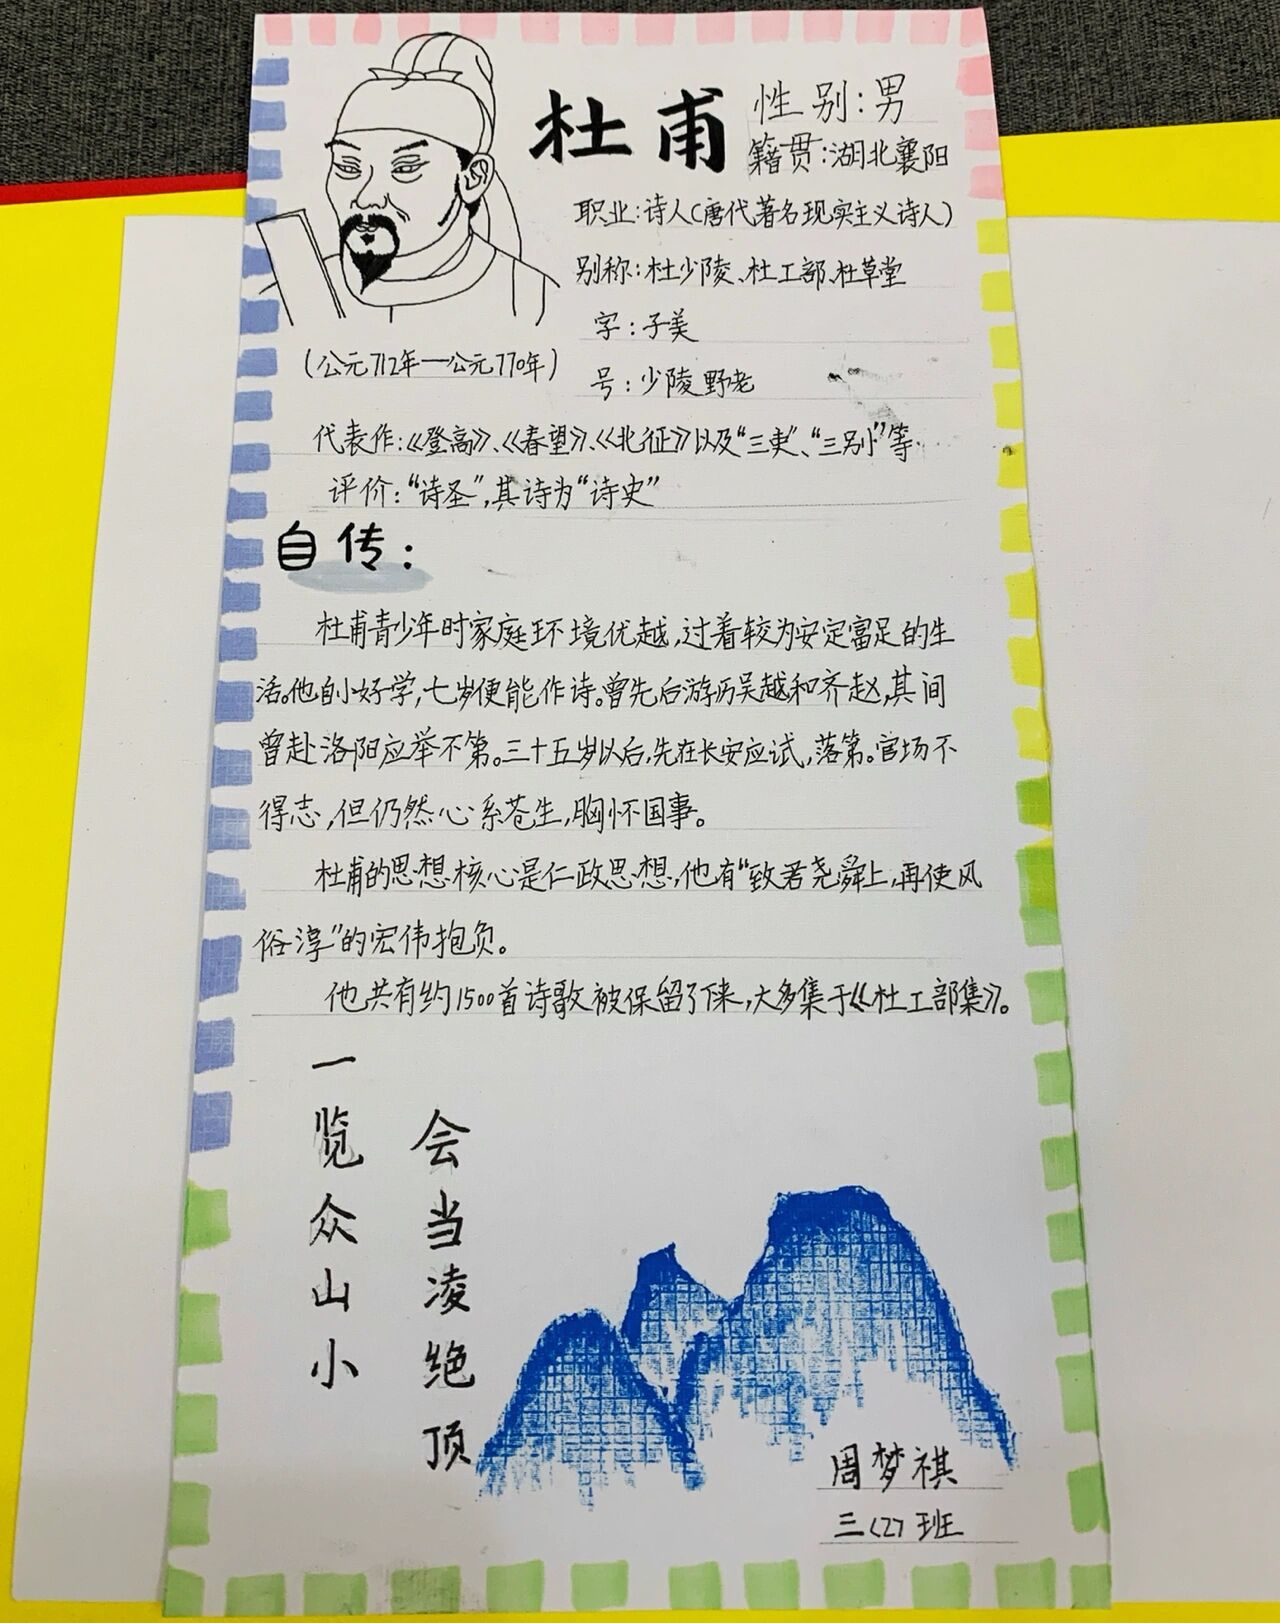 杜甫
性别:男
籍贯:湖北襄阳
职业:诗人(唐代著名现实主义诗人)
别称:杜少陵、杜工部、杜草堂
字:子美
号:少陵野老
(公元712年—公元770年)
代表作:《登高》、《春望》、《北征》以及“三吏”、“三别”等.
评价:“诗圣”,其诗为“诗史”
自传:
杜甫青少年时家庭环境优越,过着较为安定富足的生
活。他自小好学,七岁便能作诗。曾先后游历吴越和齐赵,其间
曾赴洛阳应举不第。三十五岁以后,先在长安应试,落第。官场不
得志,但仍然心系苍生,胸怀国事。
杜甫的思想核心是仁政思想,他有“致君尧舜上,再使风
俗淳”的宏伟抱负。
他共有约1500首诗歌被保留了下来,大多集于《杜工部集》。
会当凌绝顶
一览众山小
周梦祺
三〈2〉班